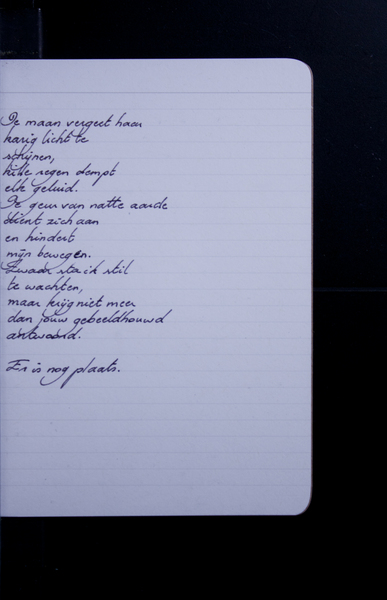 De maan vergeet haar
karig licht te
schijnen,
kille regen dempt
elk geluid.
De geur van natte aarde
dient zich aan
en hindert
mijn bewegen.
Zwaar sta ik stil
te wachten,
maar krijg niet meer
dan jouw gebeeldhouwd
antwoord.
Er is nog plaats.